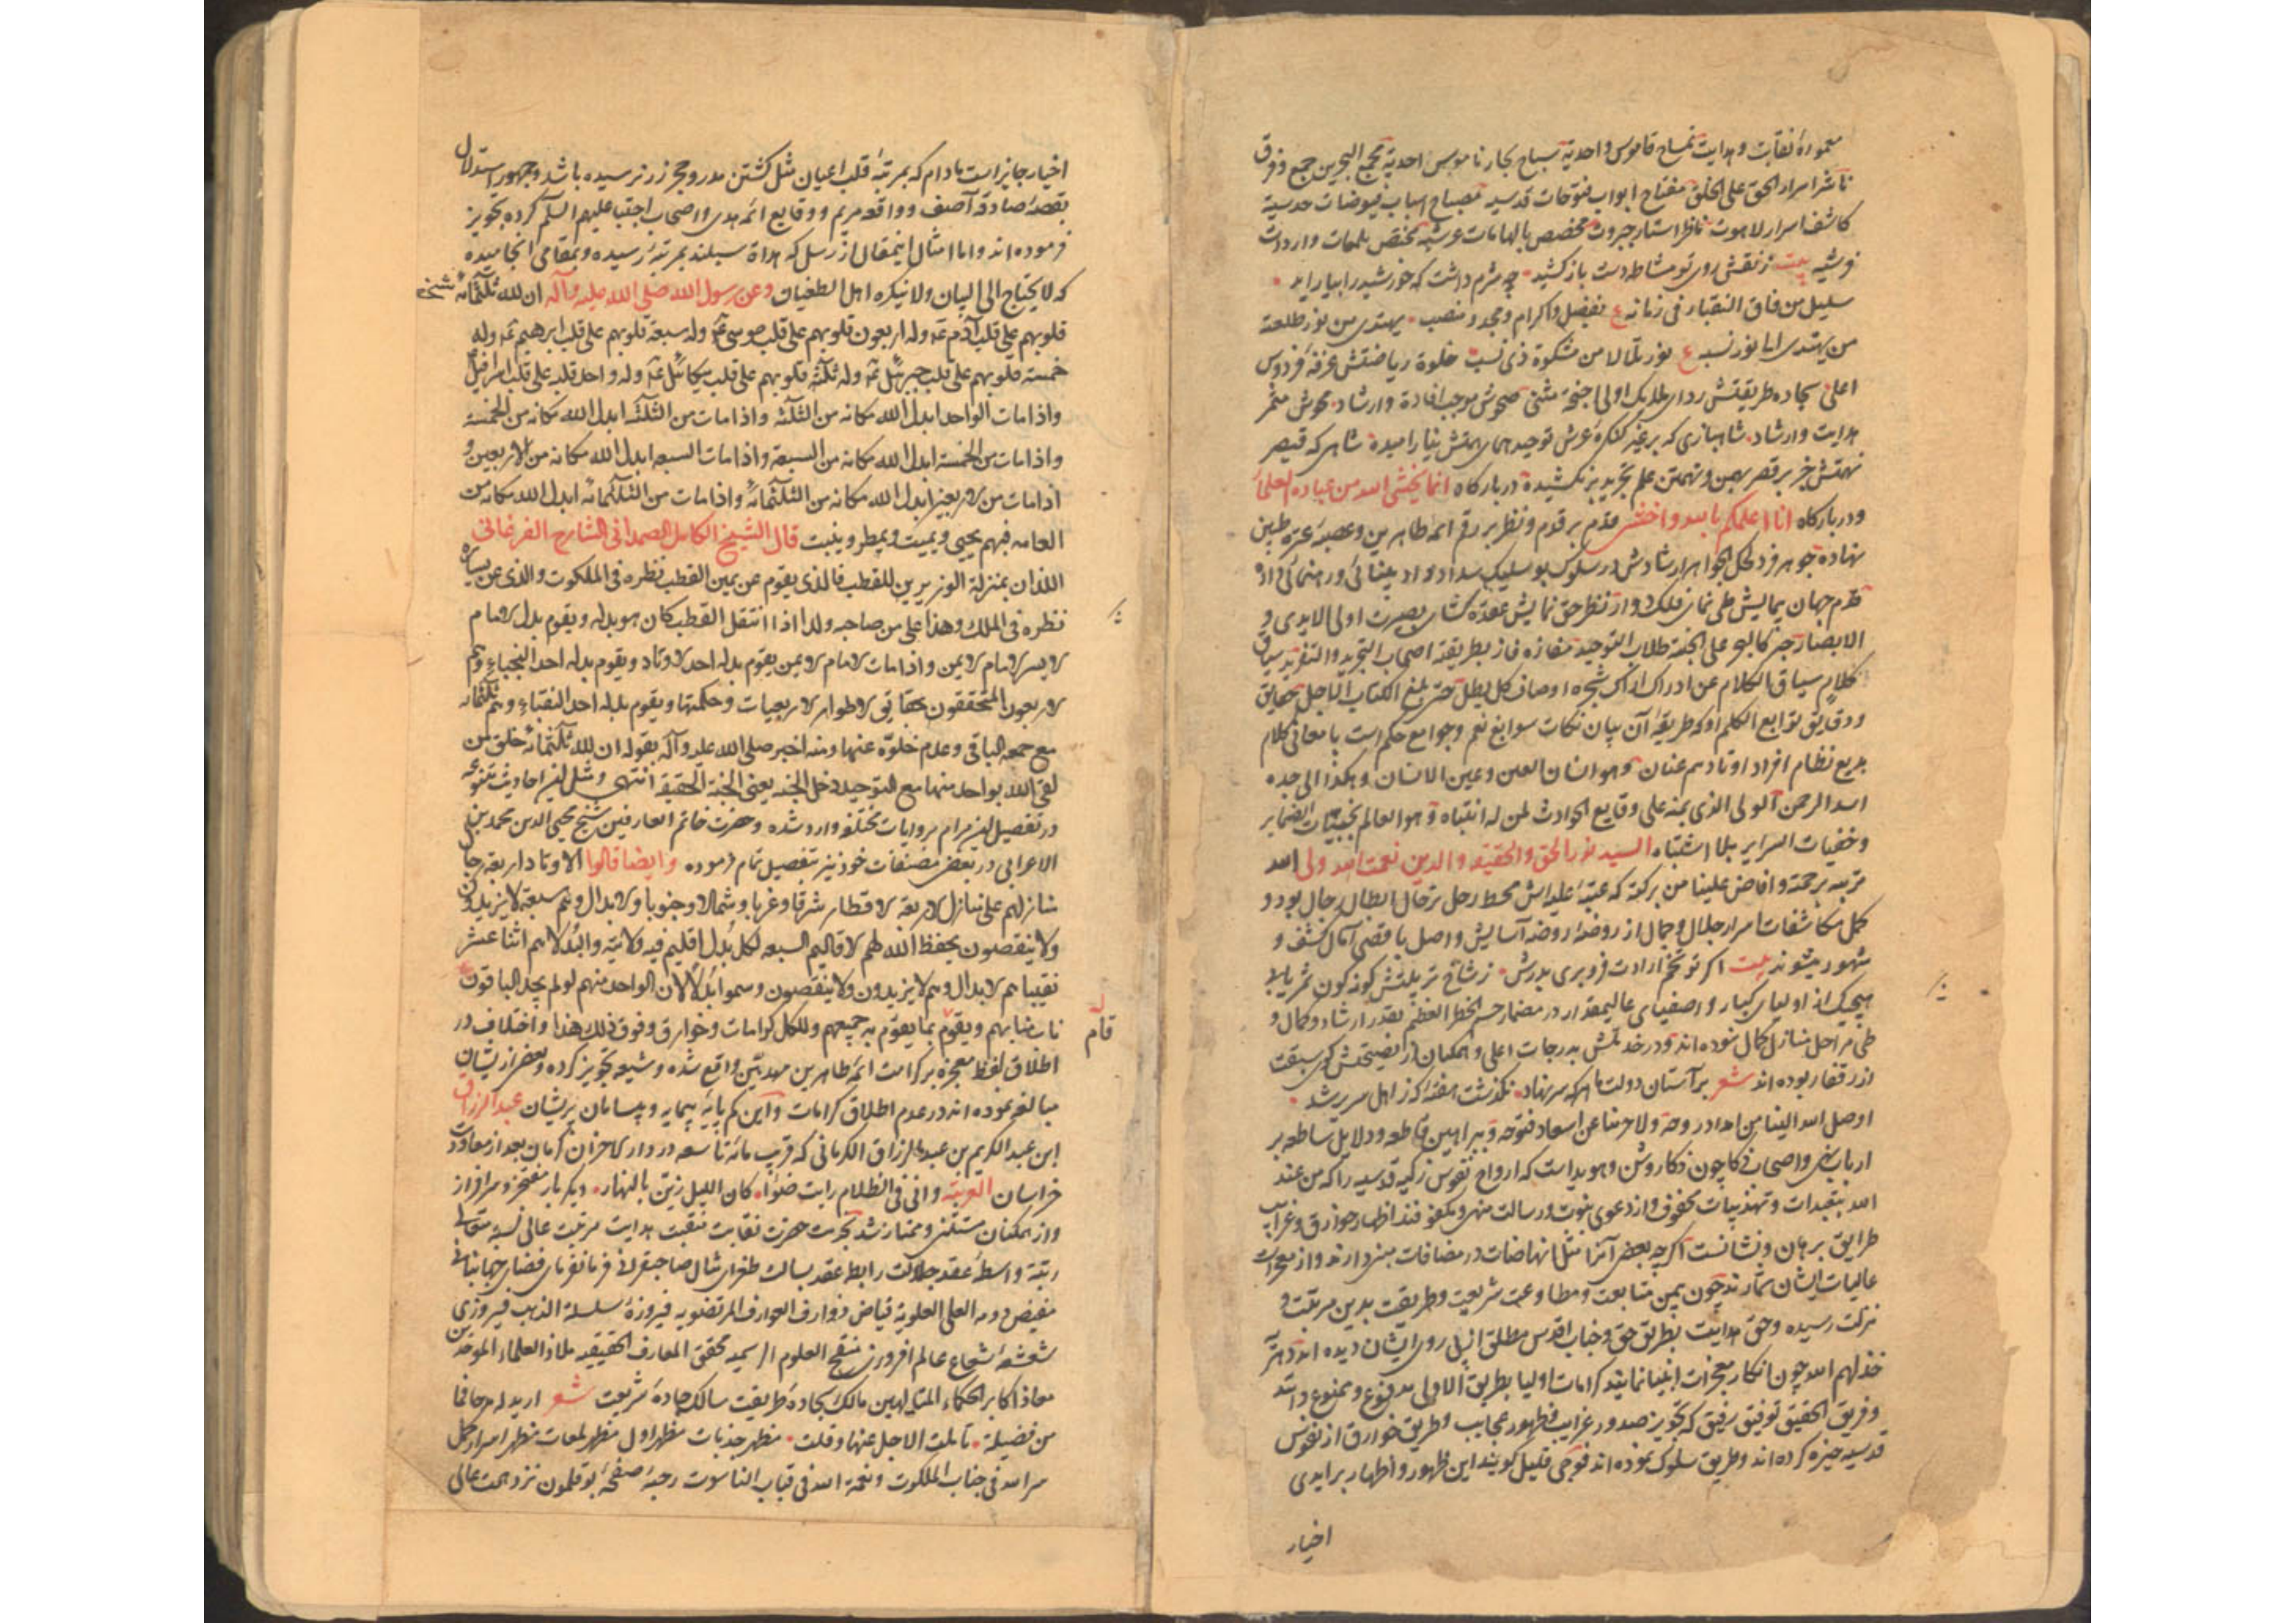 معمورهٔ نقابت و هدایت تمساح قاموس واحدیة سباح بحار ناموس احدیة مجمع البحرین جمع و فرق
ناشر اسرار الحق علی الخلق مفتاح ابواب فتوحات قدسیه مصباح اسباب فیوضات حدسیة
کاشف اسرار لاهوت ناظر استار جبروت مخصص بالهامات عرشیه مختص بلمعات و واردات
فرشیه بیت ز نقش روی تو مشاطه دست باز کشید چه شرم داشت که خورشید را بیاراید
سلیل من فاق النقباء فی زمانه ع بفضل و اکرام و مجد و منصب یهتدی من نور طلعته
من یهتدی الا نور نسبه ع نور تلألأ من مشکوة ذی نسب خلوة ریاضتش غرفه فردوس
اعلی سجاده طریقتش ردای ملایک اولی اجنحة مثنی صحوش موجب افادة و ارشاد محوش مثمر
هدایت و ارشاد شاهبازی که بر غیر کنکرهٔ عرش توحید همای همتش نیارامیده شاهی که قیصر
نهمتش جز بر قصر بهمن و تهمتن علم تجرید بر نکشیده در بارکاه انما یخشی الله من عباده العلماء
و در بارکاه انا اعلمکم بالله و اخشی قدم بر قدم و نظر بر رقم ائمه طاهرین و عصبه عترة طیبین
نهاده جوهر فرد کحل الجواهر ارشادش در سلوک بوسلیک سداد و اد بینائی و رهنمائی داده
قدم جهان پیمایش طی نمای فلک دوار نظر حق نمایش عقده کشای بصیرت اولی الایدی و
الابصار طلاب التوحید مفازه فاز بطریقة اصحاب التجرید و التفرید سیاق
کلام سیاق الکلام عن ادراک اوصاف کل بطل حتی بلغ الکتاب اجل حقایق
و دقایق توابع الکلم او که طریقهٔ آن بیان نکات سوابغ نعم و جوامع حکم است با معانی کلام
بدیع نظام افراد اوتاد هم عنان و هو انسان العین و عین الانسان و هکذا الی جده
اسد الرحمن الولی الذی نبه علی وقایع الحوادث لمن له انتباه و هو العالم بخبیئات الضمایر
و خفیات السرایر بلا اشتباه السید نور الحق و الحقیقه و الدین نعمت الله ولی الله
تربه برحمته و افاض علینا من برکته که عتبهٔ علیه اش محط رحل ترحال ابطال رجال بود و
کمل مکاشفات اسرار جلال و جمال از روضهٔ اروضه آسایش واصل باقصی آمال کشف و
شهود میشوند بیت اکر تو تخم ارادت فرو بری بدرش ز شاخ تربیتش کونه کون ثمر یابی
هیچیک از اولیای کبار و اصفیای عالیمقدار در مضمار جسیم الخطر العظیم بقدر ارشاد و کمال و
طی مراحل منازل کمال نبوده اند و در خدمتش بدرجات اعلی و همکنان از نصیحتش کوی سبقت
از رفقا ربوده اند شعر بر آستان دولت ما هر که سر نهاد نکذشت هفتهٔ که ز اهل سریر شد
اوصل الله الینا من امداد روحه و لا حرمنا عن اسعاد فتوحه و ببراهین قاطعه و دلایل ساطعه بر
ارباب نهی و اصحاب ذکا چون ذکا روشن و هویداست که ارواح نفوس زکیه قدسیه را که من عند
الله بتعبدات و تهذیبات محفوف و از دعوی نبوت و رسالت منهی و مکفوفند اظهار خوارق و غرایب
طرایق برهان و نشانست اکرچه بعضی آنرا مثل انهاضات در مضافات مبین دارند و از معجزات
عالیات ایشان شمارند چون بیمن متابعت و مطاوعت شریعت و طریقت بدین مرتبت و
منزلت رسیده و حق هدایت بطریق حق و جناب اقدس مطلق از پیروی ایشان دیده اند دهریه
خذلهم الله چون انکار معجزات انبیا نمایند کرامات اولیا بطریق الاولی مدفوع و ممنوع دانند
و فریق الحقیق توفیق رفیق که تجویز صدور غرایب و ظهور عجایب و طریق خوارق از نفوس
قدسیه حیزه کرده اند و طریق سلوک نموده اند فوجی قلیل کویند این ظهور و اظهار بر ایدی
اخیار
اخیار جایز است مادام که بمرتبهٔ قلب اعیان مثل کشتن مدر و حجر زر نرسیده باشد و جمهور استدلال
بقصهٔ صادقه آصف و واقعه مریم و وقایع ائمه هدی و اصحاب اجتبا علیهم السلم کرده تجویز
فرموده اند و اما امثال اینمقال از رسل که هداة سبلند بمرتبهٔ رسیده و بمقامی انجامیده
که لا یحتاج الی البیان و لا ینکره اهل الطغیان و عن رسول الله صلی الله علیه و آله ان لله ثلثمائه شخص
قلوبهم علی قلب آدم عم وله اربعون قلوبهم علی قلب موسی عم وله سبعة قلوبهم علی قلب ابرهیم عم وله
خمسته قلوبهم علی قلب جبرئیل عم وله ثلثه قلوبهم علی قلب میکائیل عم وله واحد قلبه علی قلب اسرافیل
و اذا مات الواحد ابدل الله مکانه من الثلثه و اذا مات من الثلثه ابدل الله مکانه من الخمسة
و اذا مات من الخمسة ابدل الله مکانه من السبعة و اذا مات السبعه ابدل الله مکانه من الاربعین و
اذا مات من الاربعین ابدل الله مکانه من الثلثمائة و اذا مات من الثلثمائة ابدل الله مکانه من
العامه فبهم یحیی و یمیت و یمطر و ینبت قال الشیخ الکامل الصمدانی الشارح الفرغانی
اللذان بمنزلة الوزیرین للقطب فالذی یقوم عن یمین القطب نظره فی الملکوت و الذی عن یساره
نظره فی الملک و هذا اعلی من صاحبه و لذا اذا انتقل القطب کان هو بدله و یقوم بدل الامام
الایسر الامام الایمن و اذا مات الامام الایمن یقوم بدله احد الاوتاد و یقوم بدله احد النجباء و هم
الاربعون المتحققون بحقایق الاطوار الاربعیات و حکمتها و یقوم بدله احد النقباء و هم ثلثمائه
مع جمعه الباقی و عدم خلوه عنها و منه اخبر صلی الله علیه و آله بقوله ان لله ثلثمائة خلق من
لقی الله بواحد منها مع التوحید دخل الجنه یعنی الجنة الحقیقیه انتهی و مثل این احادیث متنوعه
در تفصیل این مرام بروایات مختلفه وارد شده و حضرت خاتم العارفین شیخ محیی الدین محمد بن علی
الاعرابی در بعض مصنفات خود نیز بتفصیل تمام فرموده و ایضا قالوا الاوتاد اربعة رجال
منازلهم علی منازل الاربعة الاقطار شرقا و غربا و شمالا و جنوبا و الابدال و هم سبعة لا یزیدون
و لا ینقصون یحفظ الله لهم الاقالیم السبعه لکل بدل اقلیم فیه ولایته و البدلا هم اثنا عشر
نقیبا هم الابدال و هم لا یزیدون و لا ینقصون و سموا بدلا لان الواحد منهم لو لم یجد الباقون
ناب منابهم و یقوم بما یقوم به جمیعهم و للکل کرامات و خوارق و فوق ذلک هذا و اختلاف در
قام
اطلاق لفظ معجزه بر کرامت ائمه طاهرین مهدیین واقع شده و شیعه تجویز کرده و بعضی از ایشان
مبالغه نموده اند در عدم اطلاق کرامات و این کم پایهٔ بیمایه و بیسامان پریشان عبد الرزاق
ابن عبد الکریم بن عبد الرزاق الکرمانی که قریب مائة تاسعه در دار الامان کرمان بعد از معاودت
خراسان العربیة و انی فی الظلام رایت ضوءا کان اللیل زین بالنهار دیکر بار مفتخر و سرافراز
و از همکنان مستثنی و ممتاز شد بخدمت حضرت نقابت منقبت هدایت مرتبت عالی نسبة متعالی
رتبة واسطهٔ عقد جلالت رابطه عقد بسالت طغرای مثال صاحبقرانی فرمانفرمای فضای جهانبانی
مفیض دوحه العلی العلویة فیاض ذوارف العوارف المرتضویه فیروزهٔ سلسلة الذهب فیروزی
شعشعهٔ شعاع عالم افروزی منقح العلوم الرسمیه محقق المعارف الحقیقیه ملاذ العلماء الموحدین
معاذ اکابر الحکماء المتالهین مالک سجاده طریقت سالک جادهٔ شریعت شعر ارید لارجافا
من فضیلة تاملت الا جل عنها و قلت مظهر جذبات مظهر اول مظهر لمعات مظهر اسرار کمل
سر الله فی جناب الملکوت و نعمة الله فی قباب الناسوت رحبهٔ صفحهٔ بوقلمون نزد همت عالی